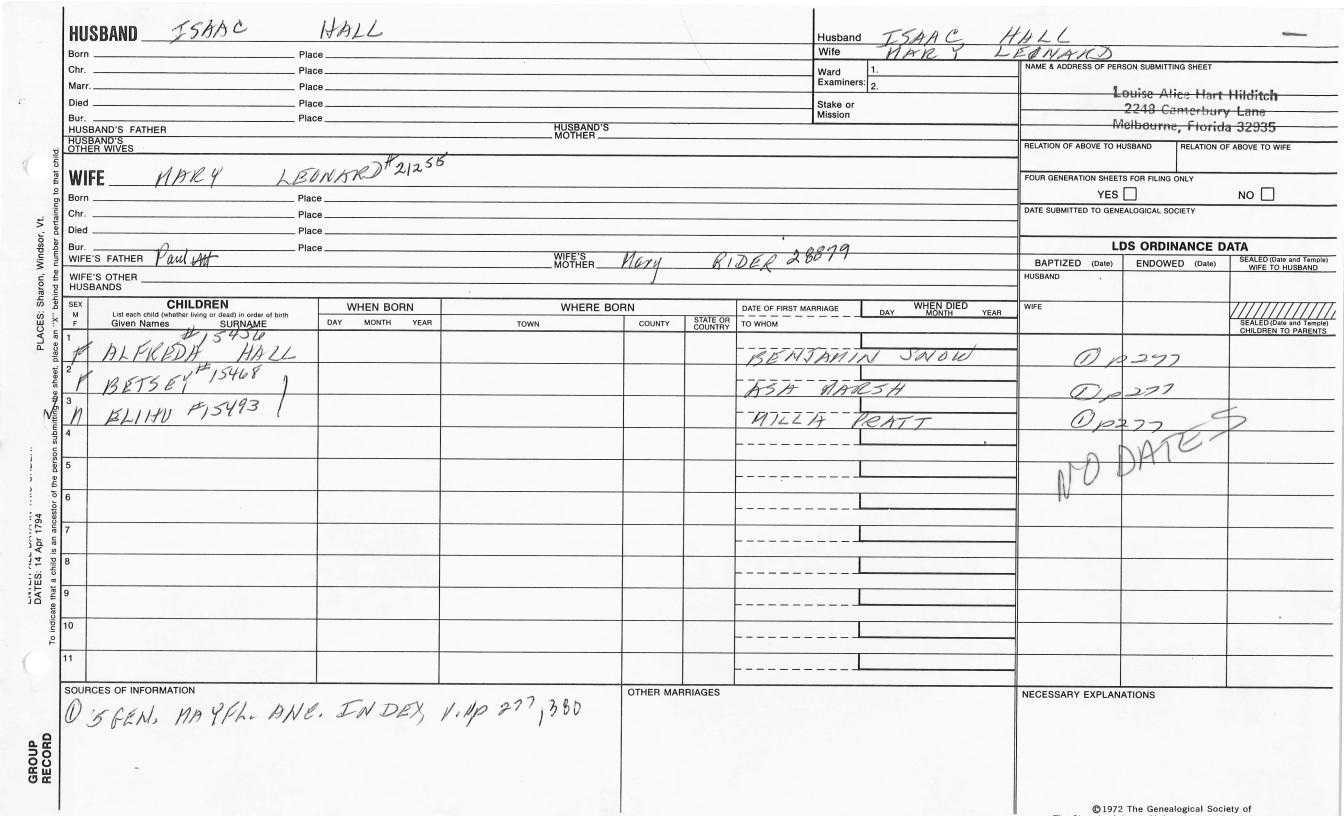 HUSBAND ISAAC HALL
Born Place
Chr. Place
Marr. Place
Died Place
Bur. Place
HUSBAND'S FATHER HUSBAND'S MOTHER
HUSBAND'S OTHER WIVES
Husband ISAAC HALL
Wife MARY LEONARD
Ward Examiners: 1.
2.
Stake or Mission
NAME & ADDRESS OF PERSON SUBMITTING SHEET
Louise Alice Hart Hilditch
2248 Canterbury Lane
Melbourne, Florida 32935
RELATION OF ABOVE TO HUSBAND RELATION OF ABOVE TO WIFE
FOUR GENERATION SHEETS FOR FILING ONLY
YES NO
DATE SUBMITTED TO GENEALOGICAL SOCIETY
WIFE MARY LEONARD #21255
Born Place
Chr. Place
Died Place
Bur. Place
WIFE'S FATHER Paul WIFE'S MOTHER Mary RIDER 28879
WIFE'S OTHER HUSBANDS
LDS ORDINANCE DATA
BAPTIZED (Date) ENDOWED (Date) SEALED (Date and Temple) WIFE TO HUSBAND
HUSBAND
WIFE
SEALED (Date and Temple) CHILDREN TO PARENTS
SEX M F
CHILDREN
List each child (whether living or dead) in order of birth
Given Names SURNAME
WHEN BORN
DAY MONTH YEAR
WHERE BORN
TOWN COUNTY STATE OR COUNTRY
DATE OF FIRST MARRIAGE
TO WHOM
WHEN DIED
DAY MONTH YEAR
#15456
1 F ALFREDA HALL BENJAMIN SNOW ① p277
2 F BETSEY #15468 ASA MARSH ① p277
3 M ELIHU #15493 MILLA PRATT ① p277
4
NO DATES
5
6
7
8
9
10
11
SOURCES OF INFORMATION
① 5 GEN. MAYFL. ANC. INDEX, 277, 380
OTHER MARRIAGES
NECESSARY EXPLANATIONS
©1972 The Genealogical Society of
PLACES: Sharon, Windsor, Vt.
DATES: 14 Apr 1794
To indicate that a child is an ancestor of the person submitting the sheet, place an "X" behind the number pertaining to that child.
GROUP RECORD